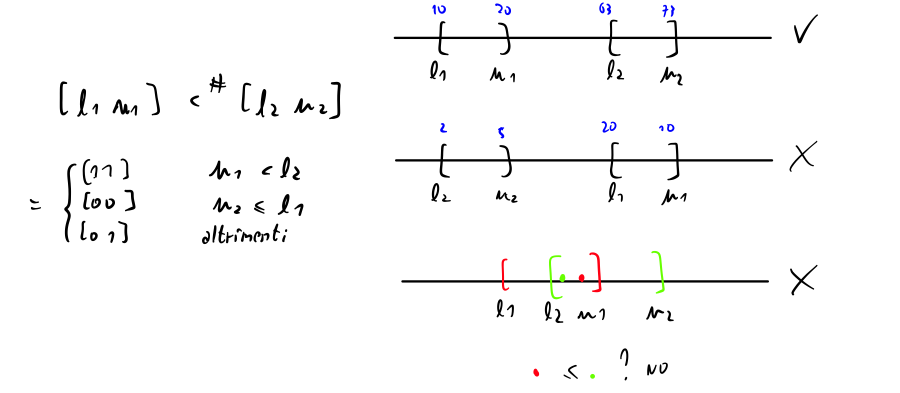 [l₁ u₁] <# [l₂ u₂]
= { [1 1] u₁ < l₂
[0 0] u₂ ≤ l₁
[0 1] altrimenti
10 20 63 77
l₁ u₁ l₂ u₂
2 5 20 30
l₂ u₂ l₁ u₁
l₁ l₂ u₁ u₂
≤ ? NO